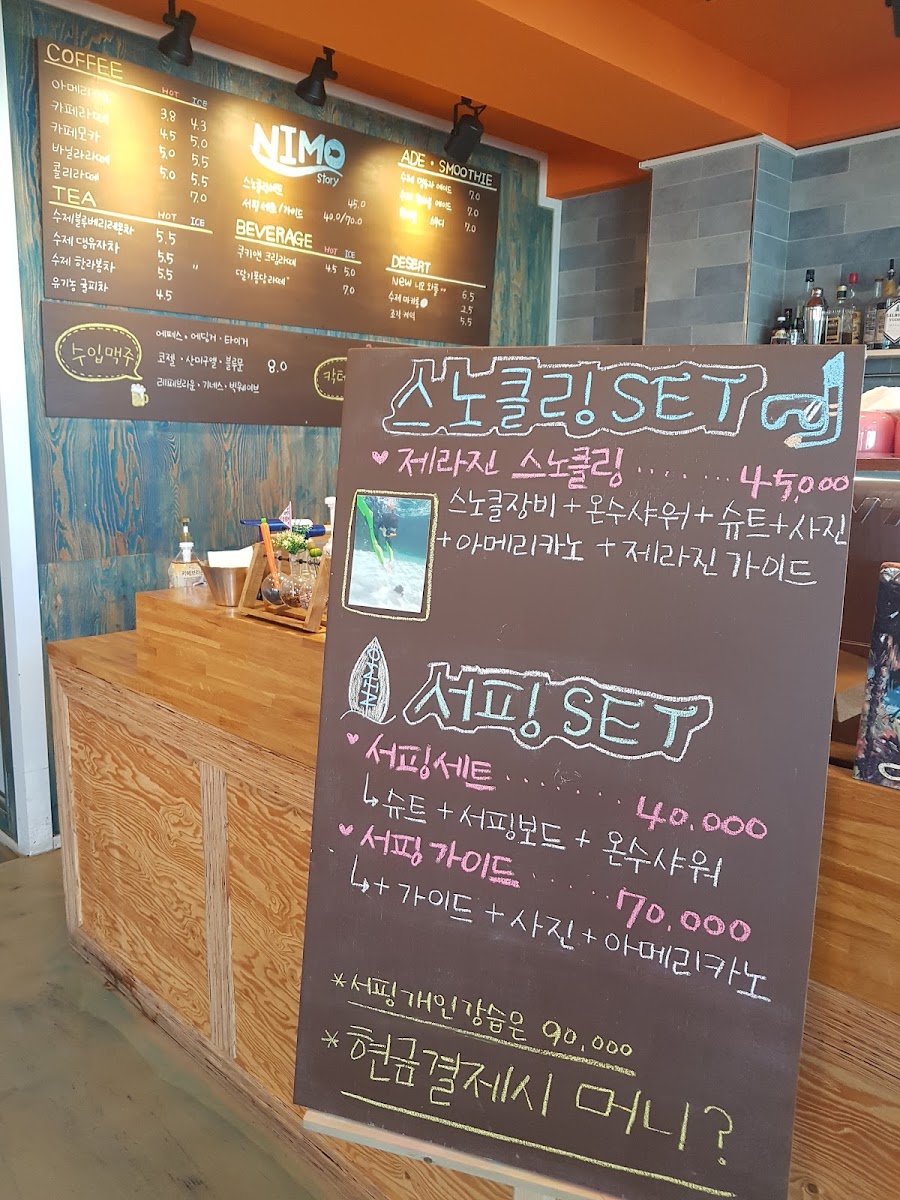 COFFEE
HOT ICE
아메리카노 3.8 4.3
카페라떼 4.5 5.0
카페모카 5.0 5.5
바닐라라떼 5.0 5.5
콜리라떼 7.0
TEA HOT ICE
수제블루베리레몬차 5.5
수제 댕유자차 5.5 "
수제 한라봉차 5.5
유기농 귤피차 4.5
NIMO
Story
스노클링세트 45.0
서핑세트/가이드 40.0/70.0
BEVERAGE HOT ICE
쿠키앤 크림라떼 4.5 5.0
딸기퐁당라떼" 7.0
ADE · SMOOTHIE
수제 에이드 7.0
수제 에이드 7.0
7.0
DESERT
New 니모 와플 6.5
수제 마카롱 2.5
조각 케익 5.5
수입맥주
에페스 · 에딩거 · 타이거
코젤 · 산미구엘 · 블루문 8.0
레페브라운 · 기네스 · 빅웨이브
칵테
스노클링 SET
♥ 제라진 스노클링 ...... 45,000
스노클장비 + 온수샤워 + 슈트 + 사진
+ 아메리카노 + 제라진 가이드
NIMO
서핑 SET
♥ 서핑세트 ....... 40.000
↳ 슈트 + 서핑보드 + 온수샤워
♥ 서핑 가이드 ...... 70.000
↳ + 가이드 + 사진 + 아메리카노
* 서핑개인강습은 90.000
* 현금결제시 머니?